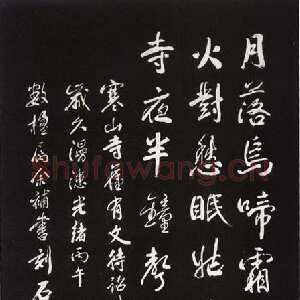 月落烏啼霜
火對愁眠姑
寺夜半鐘聲
寒山寺舊有文待詔
歲久漫漶光緒丙午
數楹屬余補書刻石
shufawang.cn